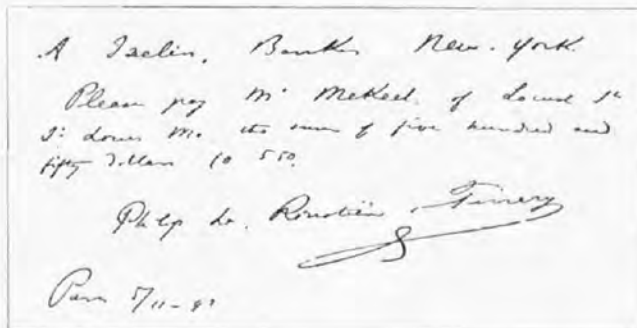 A Iselin, Banker New-York
Please pay Mr Mekeel of Locust St
St Louis Mo. the sum of five hundred and
fifty Dollars $ 550.
Philip La Renotière Ferrary
Paris 5/11-